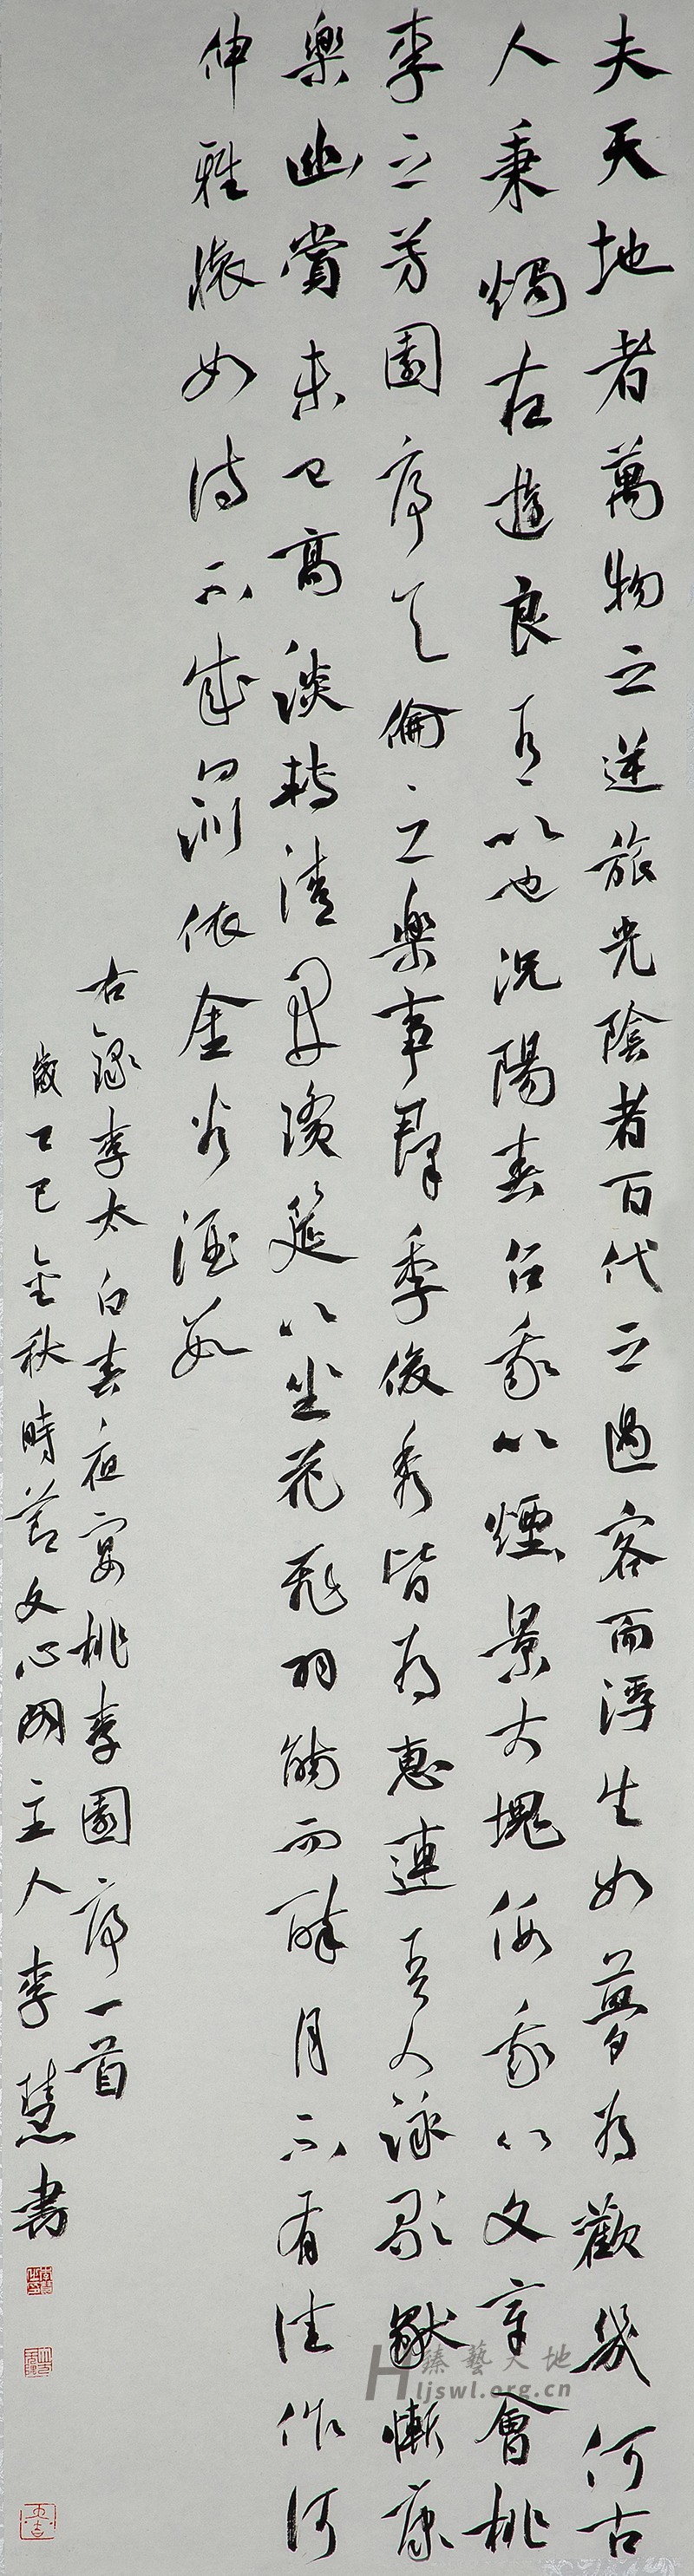 夫天地者萬物之逆旅光陰者百代之過客而浮生如夢為歡幾何古
人秉燭夜遊良有以也況陽春召我以煙景大塊假我以文章會桃
李之芳園序天倫之樂事群季俊秀皆為惠連吾人詠歌獨慚康
樂幽賞未已高談轉清開瓊筵以坐花飛羽觴而醉月不有佳作何
伸雅懷如詩不成罰依金谷酒數
右錄李太白春夜宴桃李園序一首
歲乙巳金秋時節文心閣主人李慧書
臻藝天地
Hljswl.org.cn